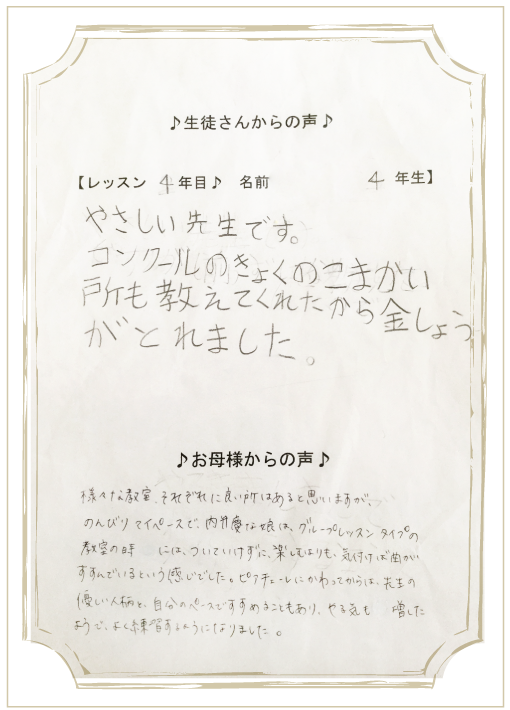 ♪生徒さんからの声♪
【レッスン 4 年目♪ 名前 4 年生】
やさしい先生です。
コンクールのきょくのこまかい
所も教えてくれたから金しょう
がとれました。
♪お母様からの声♪
様々な教室、それぞれに良い所はあると思いますが、
のんびりマイペースで、内弁慶な娘は、グループレッスンタイプの
教室の時 には、ついていけずに、楽しむよりも、気付けば曲が
すすんでいるという感じでした。ピアチェーレにかわってからは、先生の
優しい人柄と、自分のペースですすめることもあり、やる気も 増した
ようで、よく練習するようになりました。